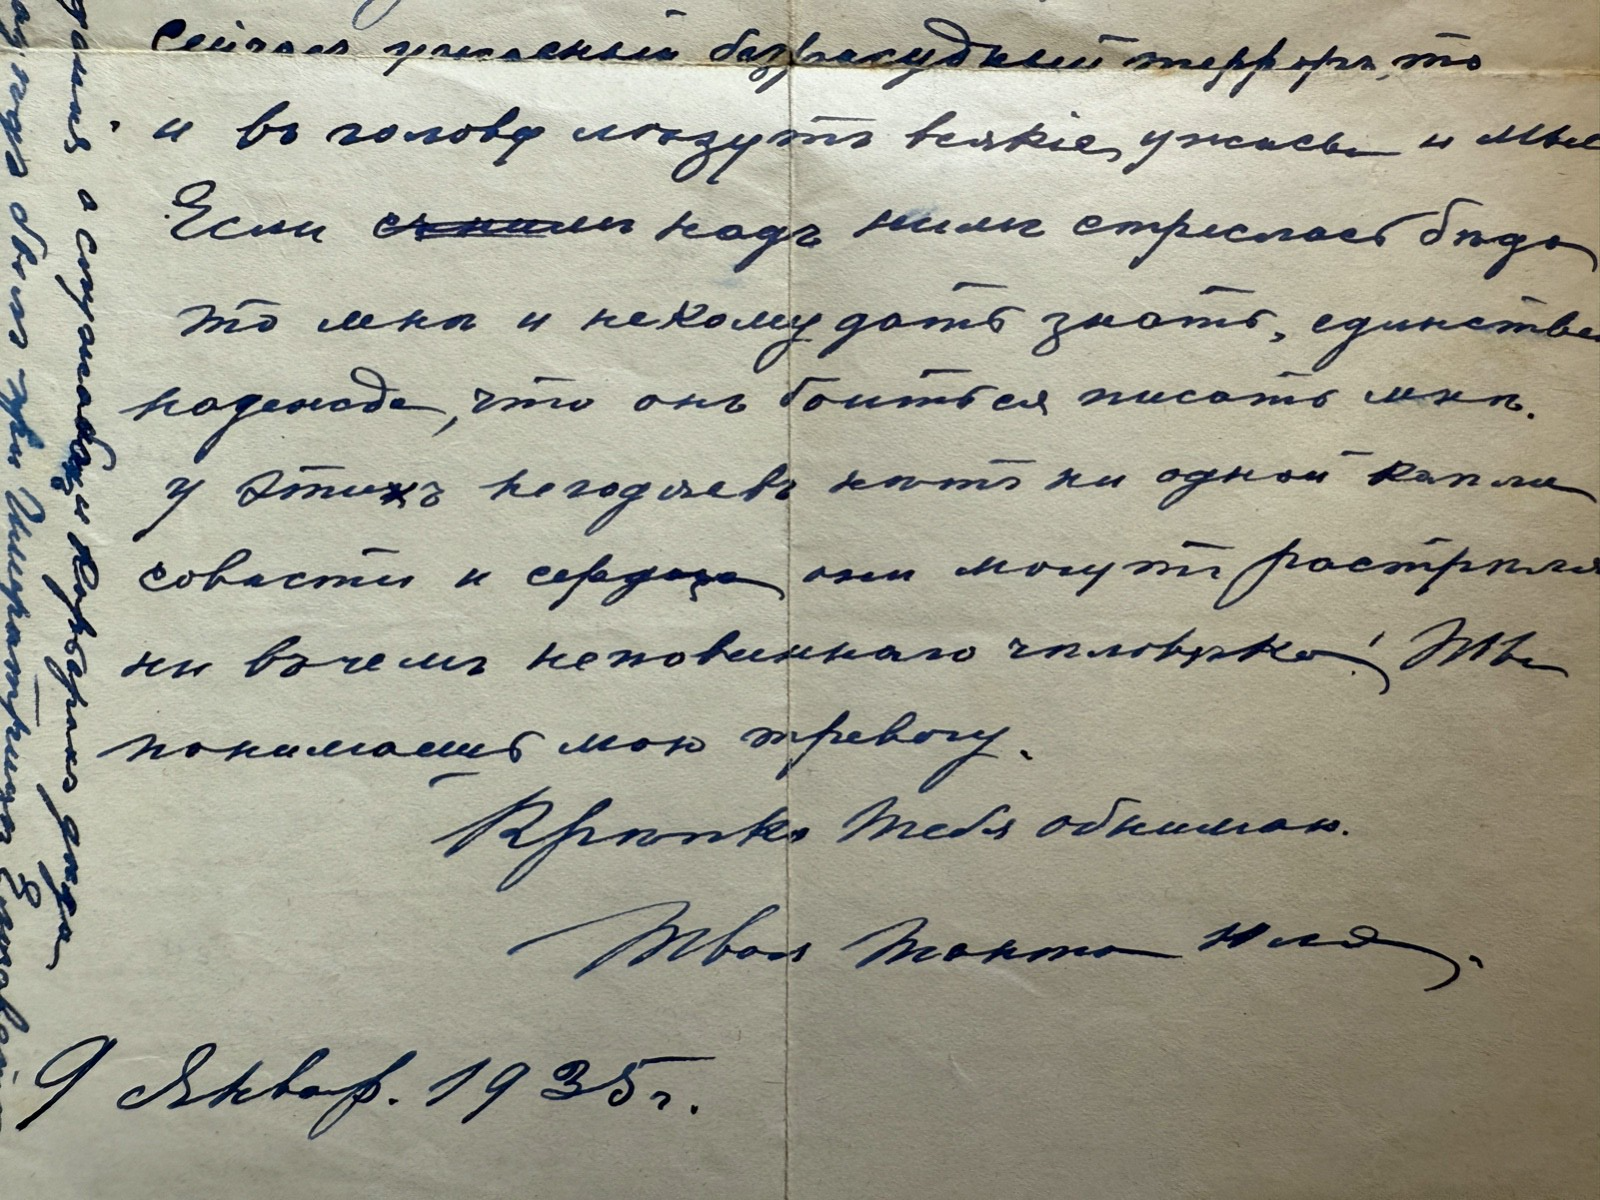 сейчасъ ужасный безразсудный терроръ, то
и въ голову лѣзутъ всякіе ужасы и мы
Если съ ними надъ ними стряслась бѣда
то мнѣ и некому дать знать, единстве
надежда, что онъ боиться писать мнѣ.
У этихъ негодяевъ нѣтъ ни одной капли
совѣсти и сердца они могутъ растрѣля
ни въ чемъ неповиннаго человѣка! Ты
понимаешь мою тревогу.
Крѣпко Тебя обнимаю.
Твоя Танта Юля.
9 Январ. 1935 г.
дѣда
былъ при Императрицѣ